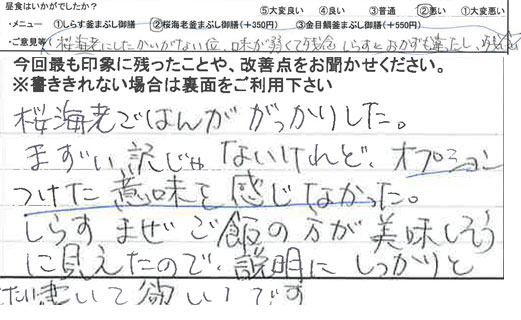 昼食はいかがでしたか？ ⑤大変良い ④良い ③普通 ②悪い ①大変悪い
・メニュー ①しらす釜まぶし御膳 ②桜海老釜まぶし御膳（+350円） ③金目鯛釜まぶし御膳（+550円）
・ご意見等（桜海老にしたかいがない位、味が弱くて残念 しらすとおかずも違ったし、残念
今回最も印象に残ったことや、改善点をお聞かせください。
※書ききれない場合は裏面をご利用下さい
桜海老ごはんが がっかりした。
まずい訳じゃないけれど、オプション
つけた意味を感じなかった。
しらすまぜご飯の方が美味しそう
に見えたので、説明にしっかりと
書いて欲しいです